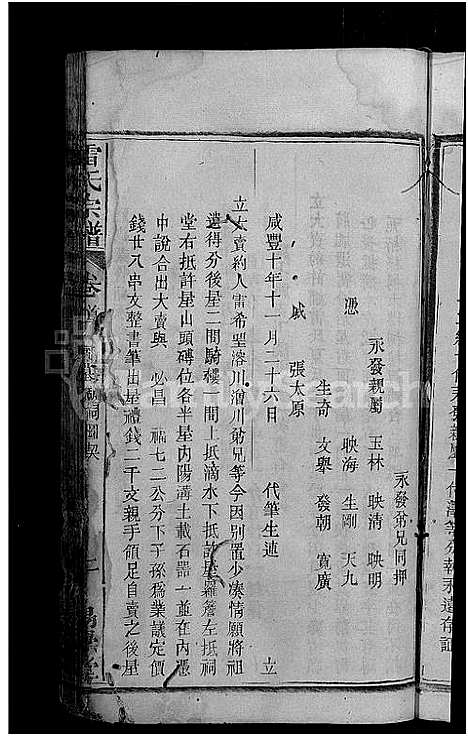 永發弟兄同押
永發親屬 玉林 映清 映明
憑 映海 生剛 天九
生奇 文舉 發朝 寬廣
戚 張太原
咸豐十年十一月二十六日 代筆生連 立
立大賣約人雷希聖溶川澮川弟兄等今因別置少湊情願將祖
遺得分後屋二間騎樓一間上抵滴水下抵許屋羅簷左抵祠
堂右抵許屋山頭磚位各半屋內陽溝土載石器一並在內憑
中說合出大賣與 必昌 福七二公分下子孫為業議定價
錢廿八串文整書筆出屋禮錢二千文親手領足自賣之後屋
雷氏宗譜 卷首 祠圖契